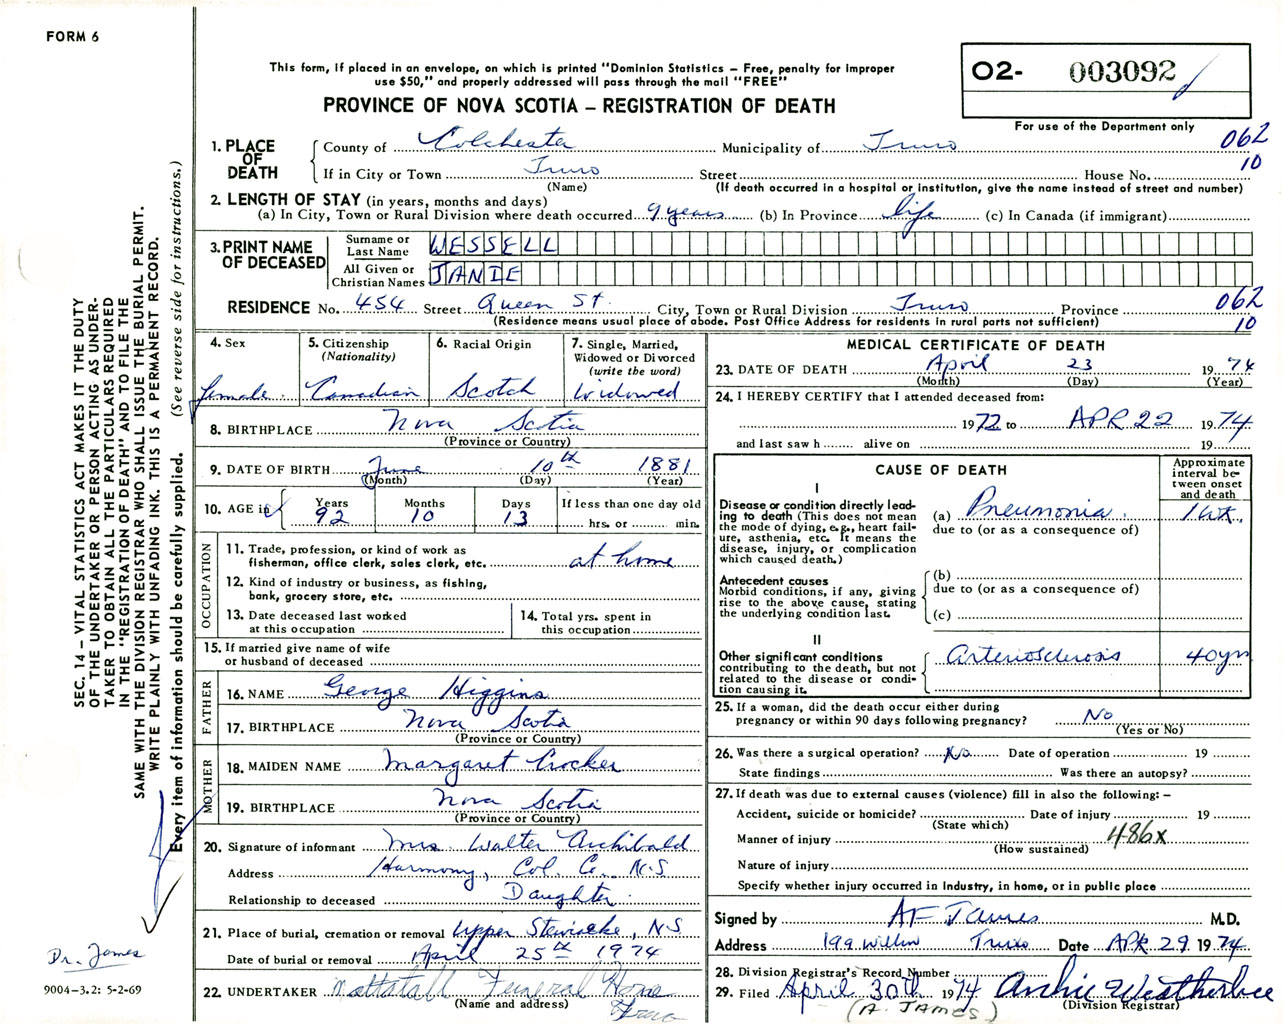 FORM 6
This form, if placed in an envelope, on which is printed "Dominion Statistics – Free, penalty for improper
use $50," and properly addressed will pass through the mail "FREE"
PROVINCE OF NOVA SCOTIA – REGISTRATION OF DEATH
O2- 003092
For use of the Department only
1. PLACE OF DEATH County of Colchester Municipality of Truro 062
If in City or Town Truro Street House No. 10
(Name) (If death occurred in a hospital or institution, give the name instead of street and number)
2. LENGTH OF STAY (in years, months and days)
(a) In City, Town or Rural Division where death occurred 9 years (b) In Province life (c) In Canada (if immigrant)
3. PRINT NAME OF DECEASED Surname or Last Name WESSELL
All Given or Christian Names JANIE
RESIDENCE No. 454 Street Queen St. City, Town or Rural Division Truro Province 062
(Residence means usual place of abode. Post Office Address for residents in rural parts not sufficient) 10
4. Sex
female
5. Citizenship
(Nationality)
Canadian
6. Racial Origin
Scotch
7. Single, Married,
Widowed or Divorced
(write the word)
Widowed
8. BIRTHPLACE Nova Scotia
(Province or Country)
9. DATE OF BIRTH June 10th 1881
(Month) (Day) (Year)
10. AGE in Years Months Days If less than one day old
92 10 13 hrs. or min.
OCCUPATION
11. Trade, profession, or kind of work as
fisherman, office clerk, sales clerk, etc. at home
12. Kind of industry or business, as fishing,
bank, grocery store, etc.
13. Date deceased last worked
at this occupation
14. Total yrs. spent in
this occupation
15. If married give name of wife
or husband of deceased
FATHER
16. NAME George Higgins
17. BIRTHPLACE Nova Scotia
(Province or Country)
MOTHER
18. MAIDEN NAME Margaret Crocker
19. BIRTHPLACE Nova Scotia
(Province or Country)
20. Signature of informant Mrs. Walter Archibald
Address Harmony, Col. Co. N.S
Relationship to deceased Daughter
21. Place of burial, cremation or removal Upper Stewiacke, N.S
Date of burial or removal April 25th 1974
22. UNDERTAKER Mattatall Funeral Home
(Name and address) Truro
MEDICAL CERTIFICATE OF DEATH
23. DATE OF DEATH April 23 1974
(Month) (Day) (Year)
24. I HEREBY CERTIFY that I attended deceased from:
1972 to APR 22 1974
and last saw h alive on 19
CAUSE OF DEATH
Approximate
interval be-
tween onset
and death
I
Disease or condition directly lead-
ing to death (This does not mean
the mode of dying, e.g., heart fail-
ure, asthenia, etc. It means the
disease, injury, or complication
which caused death.)
(a) Pneumonia. 1 wk.
due to (or as a consequence of)
Antecedent causes
Morbid conditions, if any, giving
rise to the above cause, stating
the underlying condition last.
(b)
due to (or as a consequence of)
(c)
II
Other significant conditions
contributing to the death, but not
related to the disease or condi-
tion causing it.
Arteriosclerosis 40 yrs
25. If a woman, did the death occur either during
pregnancy or within 90 days following pregnancy? No
(Yes or No)
26. Was there a surgical operation? No Date of operation 19
State findings Was there an autopsy?
27. If death was due to external causes (violence) fill in also the following: –
Accident, suicide or homicide? Date of injury 19
(State which)
Manner of injury 486x
(How sustained)
Nature of injury
Specify whether injury occurred in Industry, in home, or in public place
Signed by AF James M.D.
Address 199 Willow Truro Date APR 29 1974
28. Division Registrar's Record Number
29. Filed April 30th 1974 Archie Weatherbee
(A. JAMES) (Division Registrar)
SEC. 14 – VITAL STATISTICS ACT MAKES IT THE DUTY
OF THE UNDERTAKER OR PERSON ACTING AS UNDER-
TAKER TO OBTAIN ALL THE PARTICULARS REQUIRED
IN THE "REGISTRATION OF DEATH" AND TO FILE THE
SAME WITH THE DIVISION REGISTRAR WHO SHALL ISSUE THE BURIAL PERMIT.
WRITE PLAINLY WITH UNFADING INK. THIS IS A PERMANENT RECORD.
Every item of information should be carefully supplied. (See reverse side for instructions.)
Dr. James
9004-3.2: 5-2-69